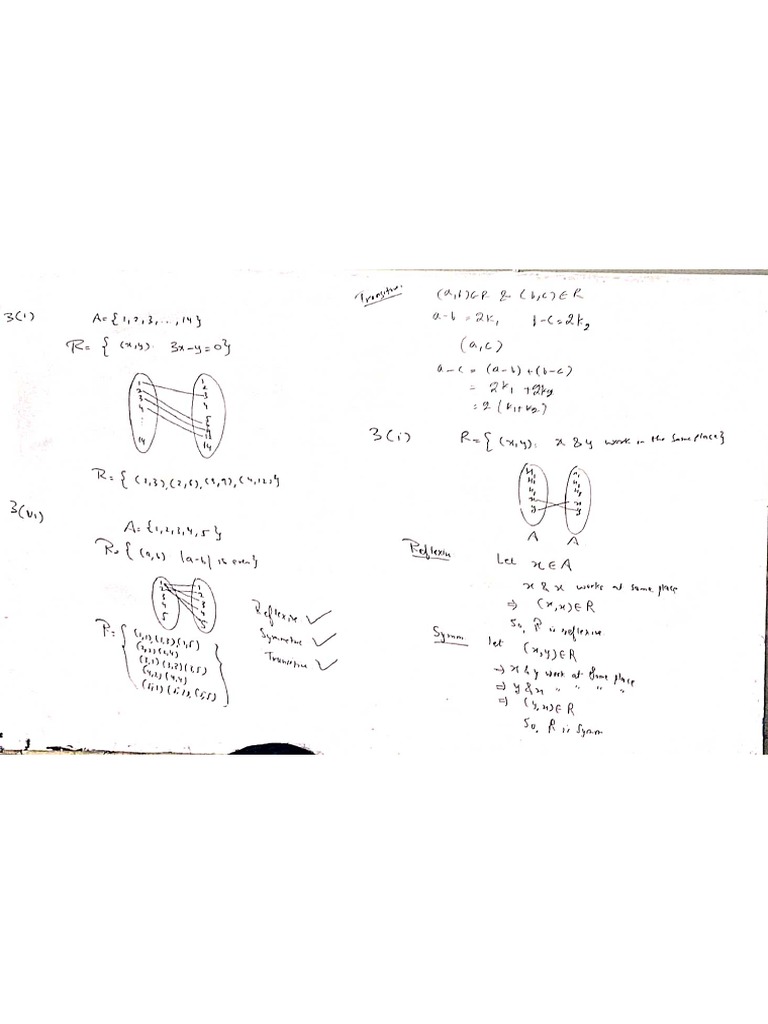 3(i) A = {1, 2, 3, ..., 14}
R = { (x,y) : 3x-y=0}
1 1
2 2
3 3
4 4
...
14 14
R = { (1,3), (2,6), (3,9), (4,12)}
3(vi)
A = {1, 2, 3, 4, 5}
R = { (a,b) |a-b| is even}
1 1
2 2
3 3
4 4
5 5
Reflexive ✓
Symmetric ✓
Transitive ✓
R = { (1,1), (1,3) (1,5)
(2,2) (2,4)
(3,1) (3,3) (3,5)
(4,2) (4,4)
(5,1) (5,3), (5,5) }
Transitive. (a,b)∈R & (b,c)∈R
a-b = 2k₁ b-c = 2k₂
(a,c)
a-c = (a-b) + (b-c)
= 2k₁ + 2k₂
= 2 (k₁+k₂)
3(i) R = { (x,y) : x & y work in the same place}
x x
y y
A A
Reflexive Let x∈A
x & x works at same place
⇒ (x,x)∈R
So, R is reflexive
Symm let (x,y)∈R
⇒ x & y work at same place
⇒ y & x " " "
⇒ (y,x)∈R
So, R is symm